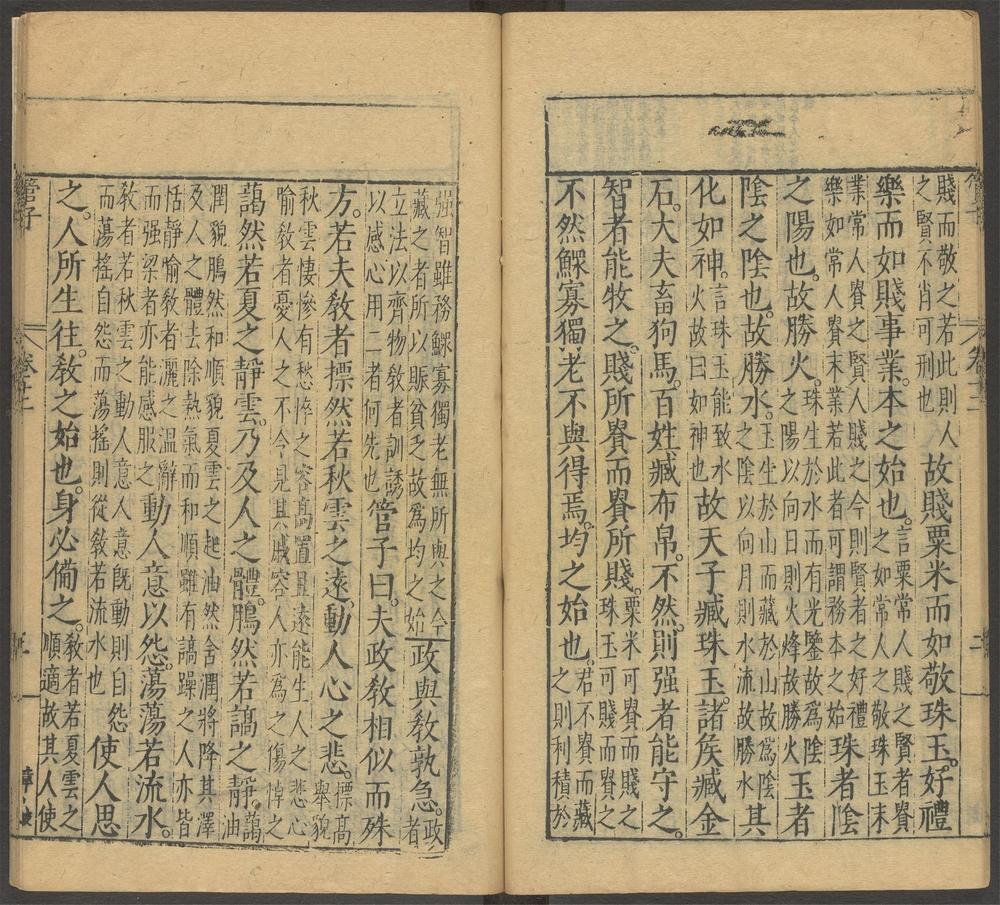 賤而敬之若此則人
之賢不肖可刑也
故賤粟米而如敬珠玉。好禮
樂而如賤事業。本之始也。
言粟常人賤之賢者貴
之如常人之敬珠玉末
業常人貴之賢人賤之今則賢者之好禮
樂如常人貴末業若此者可謂務本之始
珠者陰
之陽也。故勝火。
珠生於水而有光鑒故爲陰
之陽以向日則火烽故勝火
玉者
陰之陰也。故勝水。
玉生於山而藏於山故爲陰
之陰以向月則水流故勝水
其
化如神。
言珠玉能致水
火故曰如神也
故天子臧珠玉。諸矦臧金
石。大夫畜狗馬。百姓臧布帛。不然則强者能守之。
智者能牧之。賤所貴而貴所賤。
粟米可貴而賤之
珠玉可賤而貴之
不然鰥寡獨老不與得焉。均之始也。
君不貴而藏
之則利積於
强智雖務鰥寡獨老無所與之今
藏之者所以賑貧乏故爲均之始
政與教孰急。
政者
立法以齊物教者訓誘
以感心用二者何先也
管子曰。夫政教相似而殊
方。若夫教者摽然若秋雲之遠。動人心之悲。
摽高
舉貌
秋雲悽慘有愁悴之容高置且遠能生人之悲心
喻教者憂人之不令見其戚容人亦爲之傷悼之
藹然若夏之靜雲。乃及人之體。鵬然若謞之靜。
藹油
潤貌鵬然和順貌夏雲之起油然含潤將降其澤
及人之體去除熱氣而和順雖有謞躁之人亦皆
恬靜喻教者灑之温辭
而强梁者亦能感服之
動人意以怨。蕩蕩若流水。
教者若秋雲之動人意人意旣動則自怨
而蕩摇自怨而蕩摇則從教若流水也
使人思
之。人所生往。教之始也。身必備之。
教者若夏雲之
順適故其人使
管子
卷十二